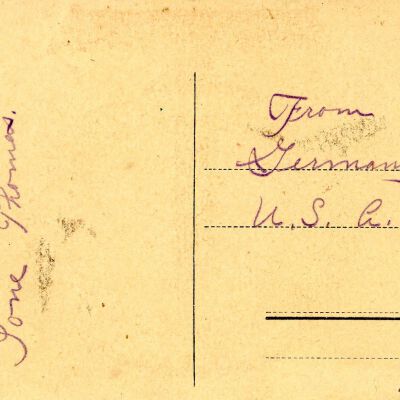 Ione Thomas.
From
Germany
U. S. A.